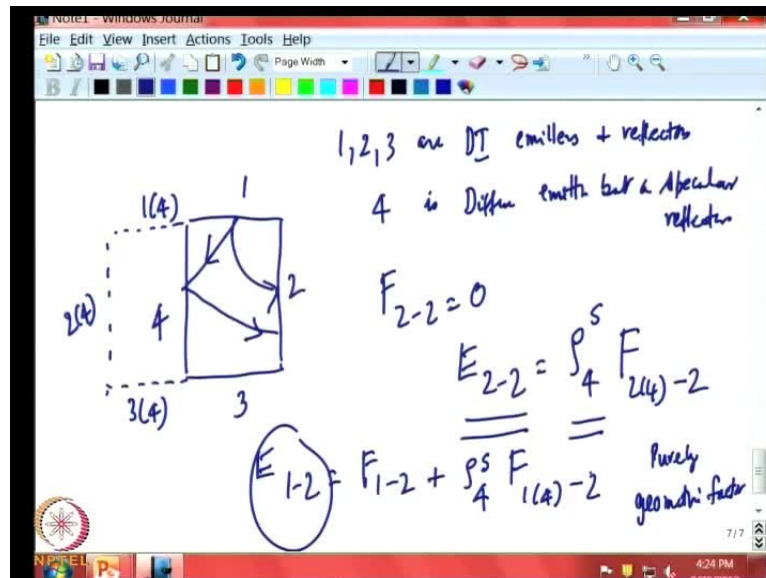 Note1 - Windows Journal
File Edit View Insert Actions Tools Help
Page Width
B I
1,2,3 are DI emitters + reflectors
4 is Diffuse emitter but a specular
reflector
1(4) 1
2(4) 4 2
3(4) 3
F2-2 = 0
E2-2 = ρ4^s F2(4)-2
E1-2 = F1-2 + ρ4^s F1(4)-2
Purely
geometric factor
7/7
NPTEL
4:24 PM